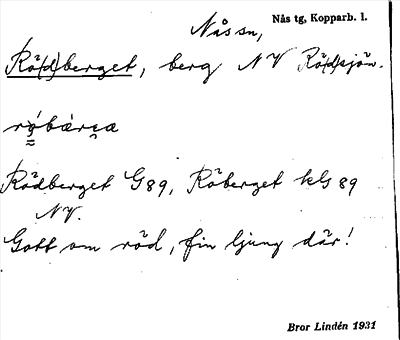 Nås sn, Nås tg, Kopparb. l.
Rö(d)berget, berg NV Rö(d)sjön.
rö́bæ̀rı̯a
Rödberget G89, Röberget kls 89
NV.
Gott om röd, fin ljung där!
Bror Lindén 1931